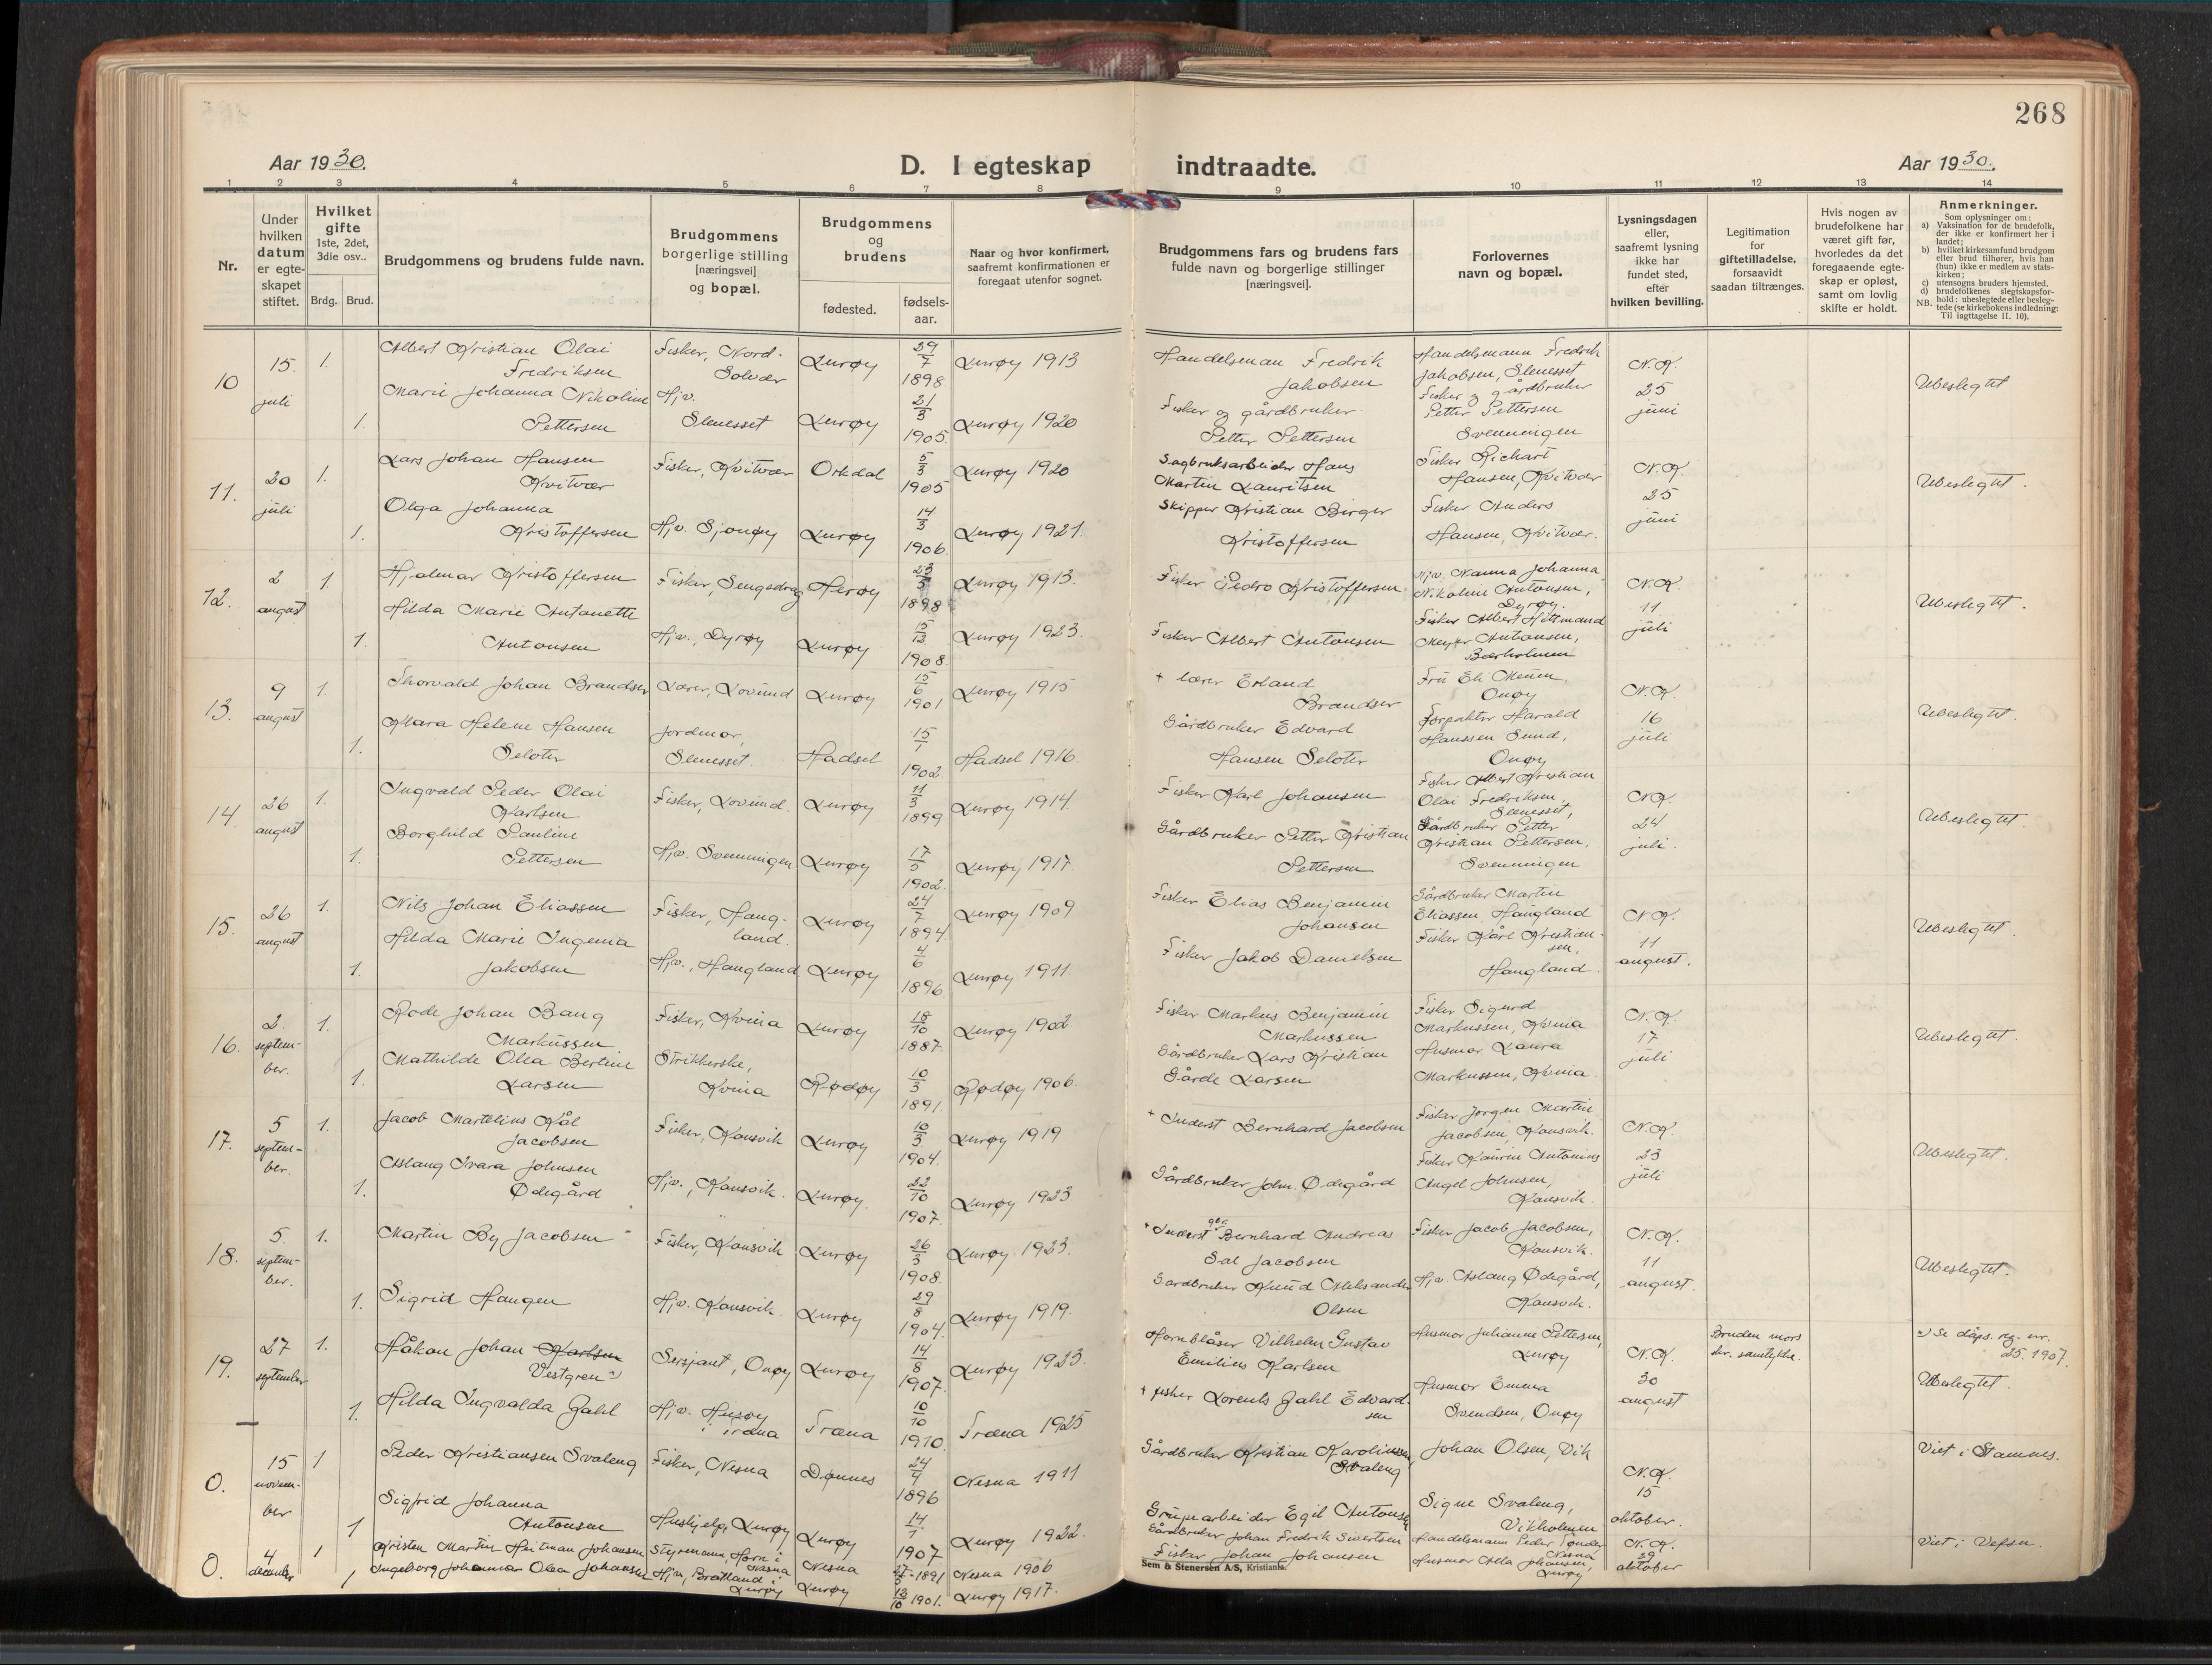 268
Aar 1930.
D. I egteskap indtraadte.
Aar 1930.
1 2 3 4 5 6 7 8 9 10 11 12 13 14
Nr.
Under hvilken datum er egteskapet stiftet.
Hvilket gifte 1ste, 2det, 3die osv..
Brdg. Brud.
Brudgommens og brudens fulde navn.
Brudgommens borgerlige stilling [næringsvei] og bopæl.
Brudgommens og brudens
fødested.
fødsels-aar.
Naar og hvor konfirmert, saafremt konfirmationen er foregaat utenfor sognet.
Brudgommens fars og brudens fars fulde navn og borgerlige stillinger [næringsvei].
Forlovernes navn og bopæl.
Lysningsdagen eller, saafremt lysning ikke har fundet sted, efter hvilken bevilling.
Legitimation for giftetilladelse, forsaavidt saadan tiltrænges.
Hvis nogen av brudefolkene har været gift før, hvorledes da det foregaaende egteskap er opløst, samt om lovlig skifte er holdt.
Anmerkninger.
Som oplysninger om:
a) Vaksination for de brudefolk, der ikke er konfirmert her i landet;
b) hvilket kirkesamfund brudgom eller brud tilhører, hvis han (hun) ikke er medlem av statskirken;
c) utensogns bruders hjemsted.
d) brudefolkenes slegtskapsforhold: ubeslegtede eller beslegtede (se kirkebokens indledning: Til iagttagelse II. 10).
NB.
10 15. juli 1. Albert Kristian Olai Fredriksen Fisker, Nord-Solvær Lurøy 29/7 1898 Lurøy 1913 Handelsman Fredrik Jakobsen Handelsmann Fredrik Jakobsen, Slenesset N.K. 25 juni Ubeslegtet
1. Marie Johanna Nikoline Pettersen Hjv. Slenesset Lurøy 21/3 1905. Lurøy 1920 Fisker og gårdbruker Petter Pettersen Fisker og gårdbruker Petter Pettersen Svenningen
11. 20 juli 1. Lars Johan Hansen Kvitvær Fisker, Kvitvær Orkdal 5/3 1905 Lurøy 1920 Sagbruksarbeider Hans Martin Lauritsen Fisker Richart Hansen, Kvitvær N.K. 25 juni Ubeslegtet.
1. Olga Johanna Kristoffersen Hjv. Sjonøy Lurøy 14/3 1906 Lurøy 1921. Skipper Kristian Birger Kristoffersen Fisker Anders Hansen, Kvitvær.
12. 2 august 1. Hjalmar Kristoffersen Fisker, Sengedrag Herøy 23/5 1898 Lurøy 1913. Fisker Pedro Kristoffersen Hjv. Nanna Johanna Nikoline Antonsen, Dyrøy. N.K. 11 juli Ubeslegtet.
1. Hilda Marie Antonette Antonsen Hjv., Dyrøy Lurøy 15/12 1908. Lurøy 1923. Fisker Albert Antonsen Fisker Albert Hitmand Meyer Antonsen, Bærholmen
13. 9 august 1. Thorvald Johan Brandser Lærer, Lovund Lurøy 15/6 1901 Lurøy 1915 + lærer Erland Brandser Fru Eli Meuen, Onøy N.K. 16 juli Ubeslegtet.
1. Klara Helene Hansen Seloter Jordmor, Slenesset. Hadsel 15/1 1902. Hadsel 1916. Gårdbruker Edvard Hansen Seloter Forpakter Harald Hanssen Sund, Onøy
14. 26 august 1. Ingvald Peder Olai Karlsen Fisker, Lovund. Lurøy 11/3 1899 Lurøy 1914. Fisker Karl Johansen Fisker Albert Kristian Olai Fredriksen, Slenesset, N.K. 24 juli. Ubeslegtet.
1. Borghild Pauline Pettersen Hjv. Svenningen Lurøy 17/5 1902. Lurøy 1917. Gårdbruker Petter Kristian Pettersen Gårdbruker Petter Kristian Pettersen, Svenningen
15. 26 august 1. Nils Johan Eliassen Fisker, Haugland. Lurøy 24/7 1894 Lurøy 1909 Fisker Elias Benjamin Johansen Gårdbruker Martin Eliassen, Haugland N.K. 11 august. Ubeslegtet.
1. Hilda Marie Ingema Jakobsen Hjv., Haugland Lurøy 4/6 1896. Lurøy 1911 Fisker Jakob Danielsen Fisker Kårl Kristiansen, Haugland.
16. 2. september. 1. Rode Johan Bang Markussen Fisker, Kvina Lurøy 18/10 1887. Lurøy 1902 Fisker Markus Benjamin Markussen Fisker Sigurd Markussen, Kvina N.K. 17 juli Ubeslegtet.
1. Mathilde Olea Bertine Larsen Strikkerske, Kvina Rødøy 10/3 1891. Rødøy 1906. Gårdbruker Lars Kristian Gårde Larsen Husmor Laura Markussen, Kvina
17. 5 september. 1. Jacob Martelius Kål Jacobsen Fisker, Konsvik Lurøy 10/3 1904. Lurøy 1919 + Inderst Bernhard Jacobsen Fisker Jørgen Martin Jacobsen, Konsvik. N.K. 23 juli Ubeslegtet.
1. Aslaug Ivara Johnsen Ødegård Hjv., Konsvik. Lurøy. 22/10 1907. Lurøy 1923 Gårdbruker John. Ødegård Fisker Laurin Antonius Angel Johnsen, Konsvik.
18. 5. september. 1. Martin By Jacobsen Fisker, Konsvik Lurøy 26/3 1908. Lurøy 1923. + Inderst Bernhard Andreas Sal Jacobsen Fisker Jacob Jacobsen, Konsvik. N.K. 11 august. Ubeslegtet.
1. Sigrid Haugen Hjv. Konsvik. Lurøy 29/8 1904. Lurøy 1919. Gårdbruker Knud Aleksander Olsen Hjv. Aslaug Ødegård, Konsvik.
19. 27 september 1. Håkon Johan Karlsen Vestgren Sersjant, Onøy Lurøy 14/8 1907. Lurøy 1923. Hornblåser Vilhelm Gustav Emilius Karlsen Husmor Julianne Pettersen, Lurøy N.K. 30 august Bruden mors skr. samtykke. Se dåps. reg. nr. 25. 1907. Ubeslegtet.
1. Hilda Ingvalda Zahl Hjv. Husøy i Træna Træna 10/10 1910. Træna 1925 + fisker Lorents Zahl Edvardsen Husmor Emma Svendsen, Onøy
0. 15 november 1 Peder Kristiansen Svaleng Fisker, Nesna Dønnes 24/4 1896 Nesna 1911 Gårdbruker Kristian Karolinssen Svaleng Johan Olsen, Vik N.K. 15 oktober. Viet i Stamnes.
1 Sigfrid Johanna Antonsen Hushjelp, Lurøy Lurøy 14/1 1907 Lurøy 1922. Grubearbeider Egil Antonsen Signe Svaleng, Vikholmen
0. 4 december 1 Kristen Martin Heitman Johansen Styrmann, Horn i Nesna Nesna 27/3-1891 Nesna 1906 Gårdbruker Johan Fredrik Sivertsen Handelsmann Peder Tønder Nesna N.K. 29 oktober Viet i Vefsn.
1 Ingeborg Johanna Olea Johansen Hjv., Bratland i Lurøy Lurøy 12/10 1901. Lurøy 1917. Fisker Johan Johansen Husmor Alla Johansen, Lurøy
Sem & Stenersen A/S, Kristiania.